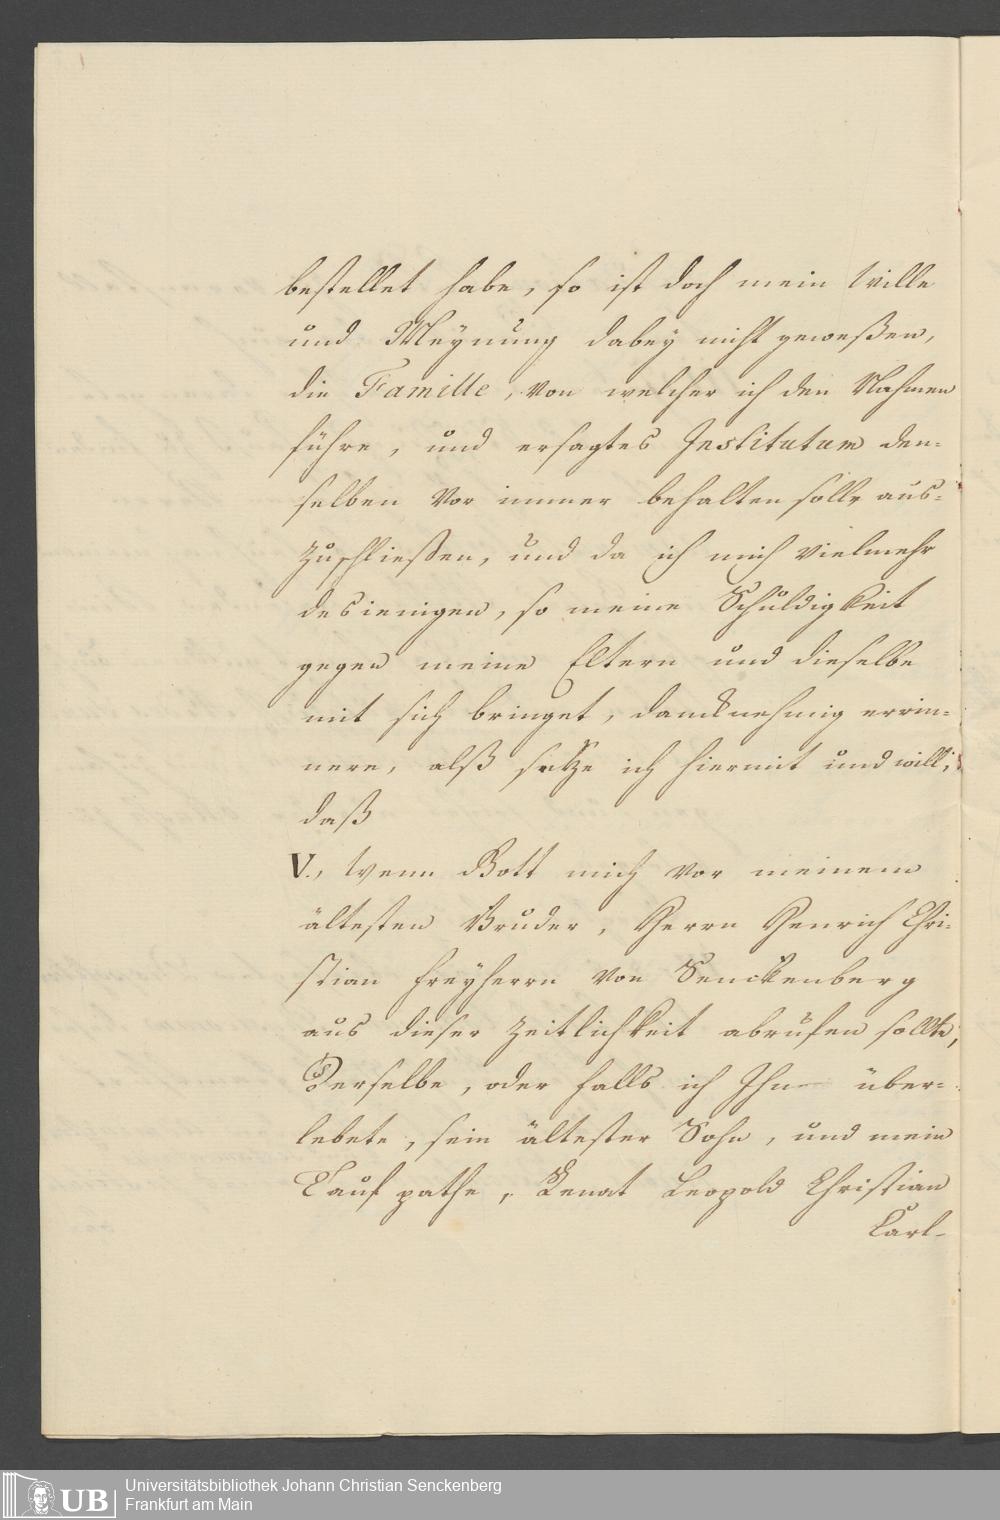 bestellet habe, so ist doch mein Wille
und Meynung dabey nicht geweßen,
die Famille, von welcher ich den Nahmen
führe, und ersagtes Institutum den-
selben vor immer behalten solle aus-
zuschließen, und da ich mich vielmehr
desienigen, so meine Schuldigkeit
gegen meine Eltern und dieselbe
mit sich bringet, dancknehmig errin-
nere, alß setze ich hiermit und will,
daß
V., Wenn Gott mich vor meinem
ältesten Bruder, Herrn Henrich Chri-
stian Freyherrn von Senckenberg
aus dieser Zeitlichkeit abrufen sollte,
Derselbe, oder falls ich Ihn über-
lebete, sein ältester Sohn, und mein
Tauf pathe, Renat Leopold Christian
Carl-
Universitätsbibliothek Johann Christian Senckenberg
Frankfurt am Main
UB